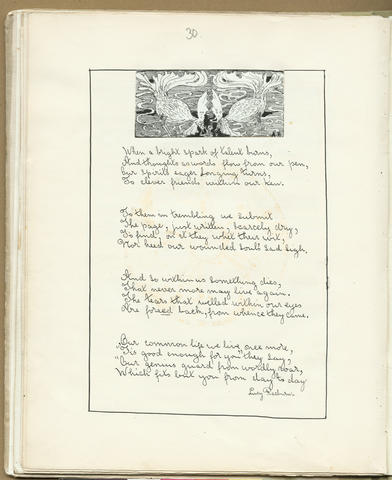 30.
When a bright spark of talent burns,
And thoughts as words flow from our pen,
Our spirits eager longing turns,
To clever friends within our ken.
To them in trembling we submit
The page, just written, scarcely dry,
To find, on it they their wit,
Nor heed our wounded soul's sad sigh.
And so within us something dies,
That never more may live again.
The tears that welled within our eyes
Are forced back, from whence they came.
Our common life we live once more,
"Tis good enough for you" they say,
"Our genius guard from wordly roar,
Which fits but you from day to day
Lucy